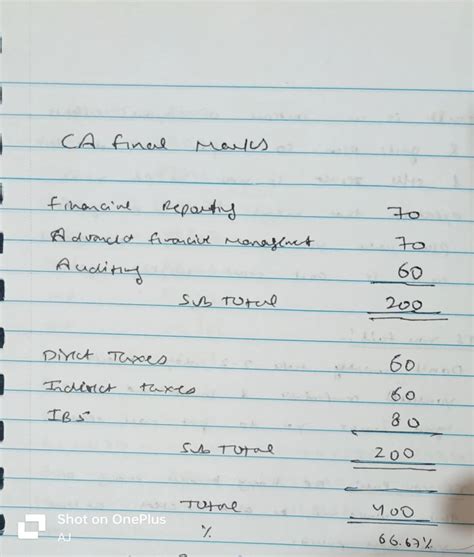 CA Final Marks
Financial Reporting 70
Advanced Financial Management 70
Auditing 60
Sub Total 200
Direct Taxes 60
Indirect taxes 60
IBS 80
Sub Total 200
Total 400
% 66.67%
Shot on OnePlus
AJ